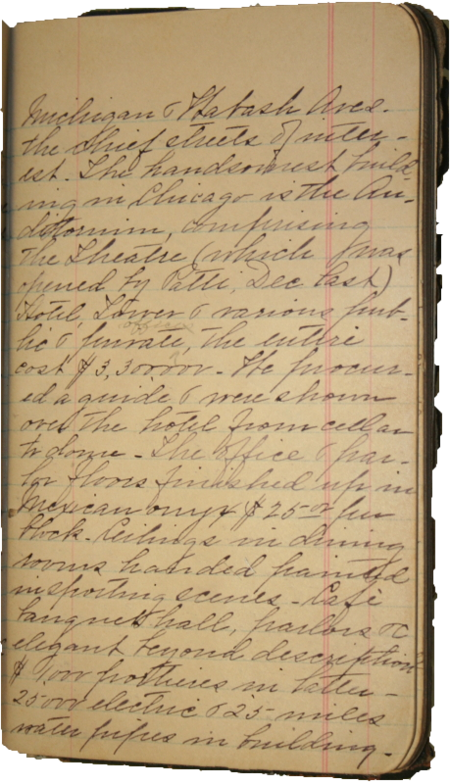 Michigan & Wabash Aves.
the chief streets of inter-
est. The handsomest build
ing in Chicago is the Au-
ditorium, comprising
the Theatre (which was
opened by Patti, Dec last)
Hotel, Tower & various pub-
offices
lic & private, the entire
cost $3,300000. We procur-
ed a guide & were shown
over the hotel from cellar
to dome - The office & par-
lor floors finished up in
Mexican onyx $25.00 per
block. Ceilings in dining
rooms handed painted
in sporting scenes - Café
banquet hall, parlors &c
elegant beyond description
$ portieres in latter -
25000 electric & 25 miles
water pipes in building -